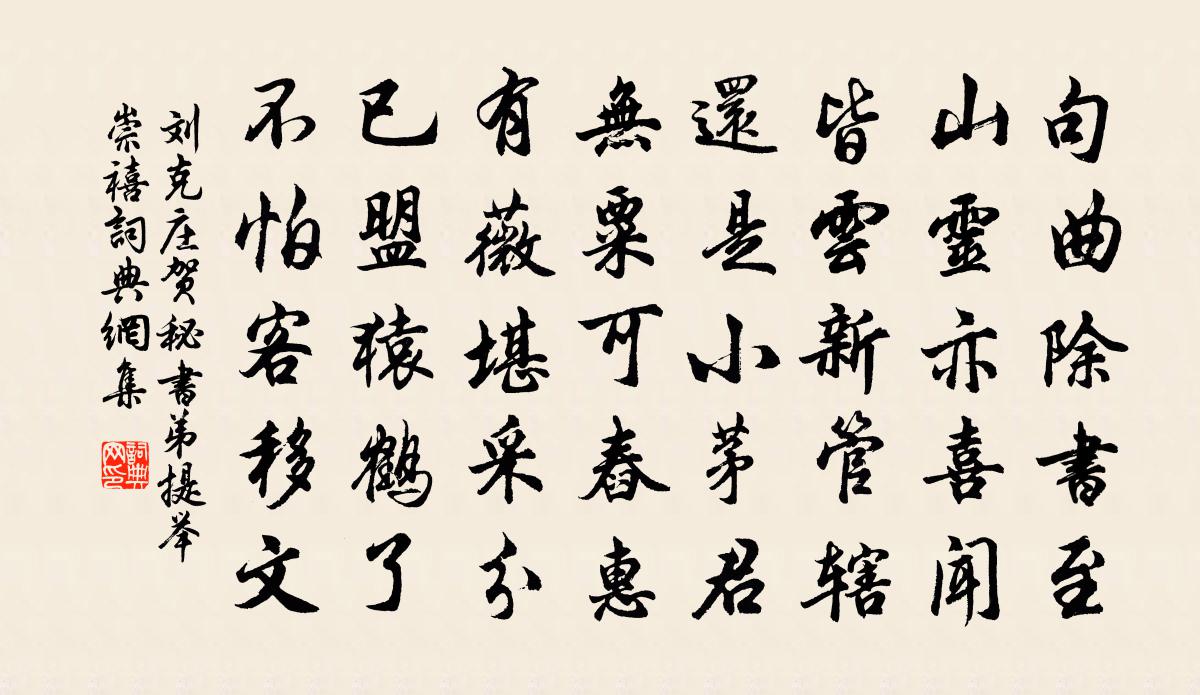 句曲除書至
山靈亦喜聞
皆雲新管辖
還是小茅君
無粟可舂惠
有薇堪采分
已盟猿鶴了
不怕客移文
刘克庄贺秘書弟提举
崇禧詞典網集
詞典
网印